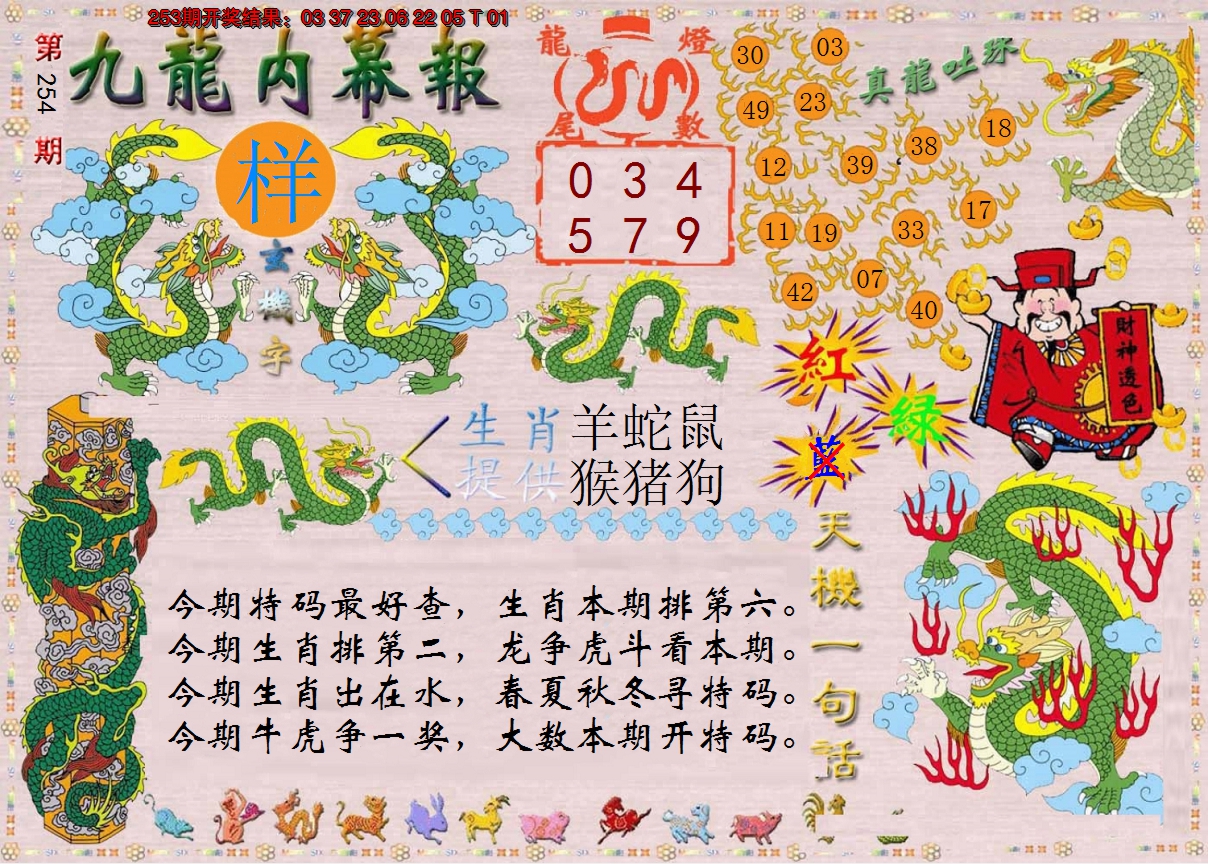 253期开奖结果：03 37 23 06 22 05 T 01
第254期
九龍内幕報
样
玄機字
龍燈尾數
0 3 4
5 7 9
真龍吐珠
30 03
49 23
12 39 38 18
11 19 33 17
42 07 40
財神透色
紅
綠
藍
生肖提供
羊蛇鼠
猴猪狗
天機一句話
今期特码最好查，生肖本期排第六。
今期生肖排第二，龙争虎斗看本期。
今期生肖出在水，春夏秋冬寻特码。
今期牛虎争一奖，大数本期开特码。